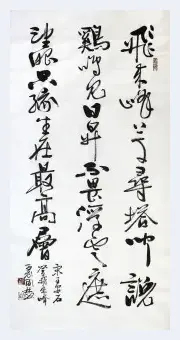 飛来峰上千尋塔聞説
雞鳴見日昇不畏浮雲遮
望眼只緣生在最高層
宋王安石
登飛來峰